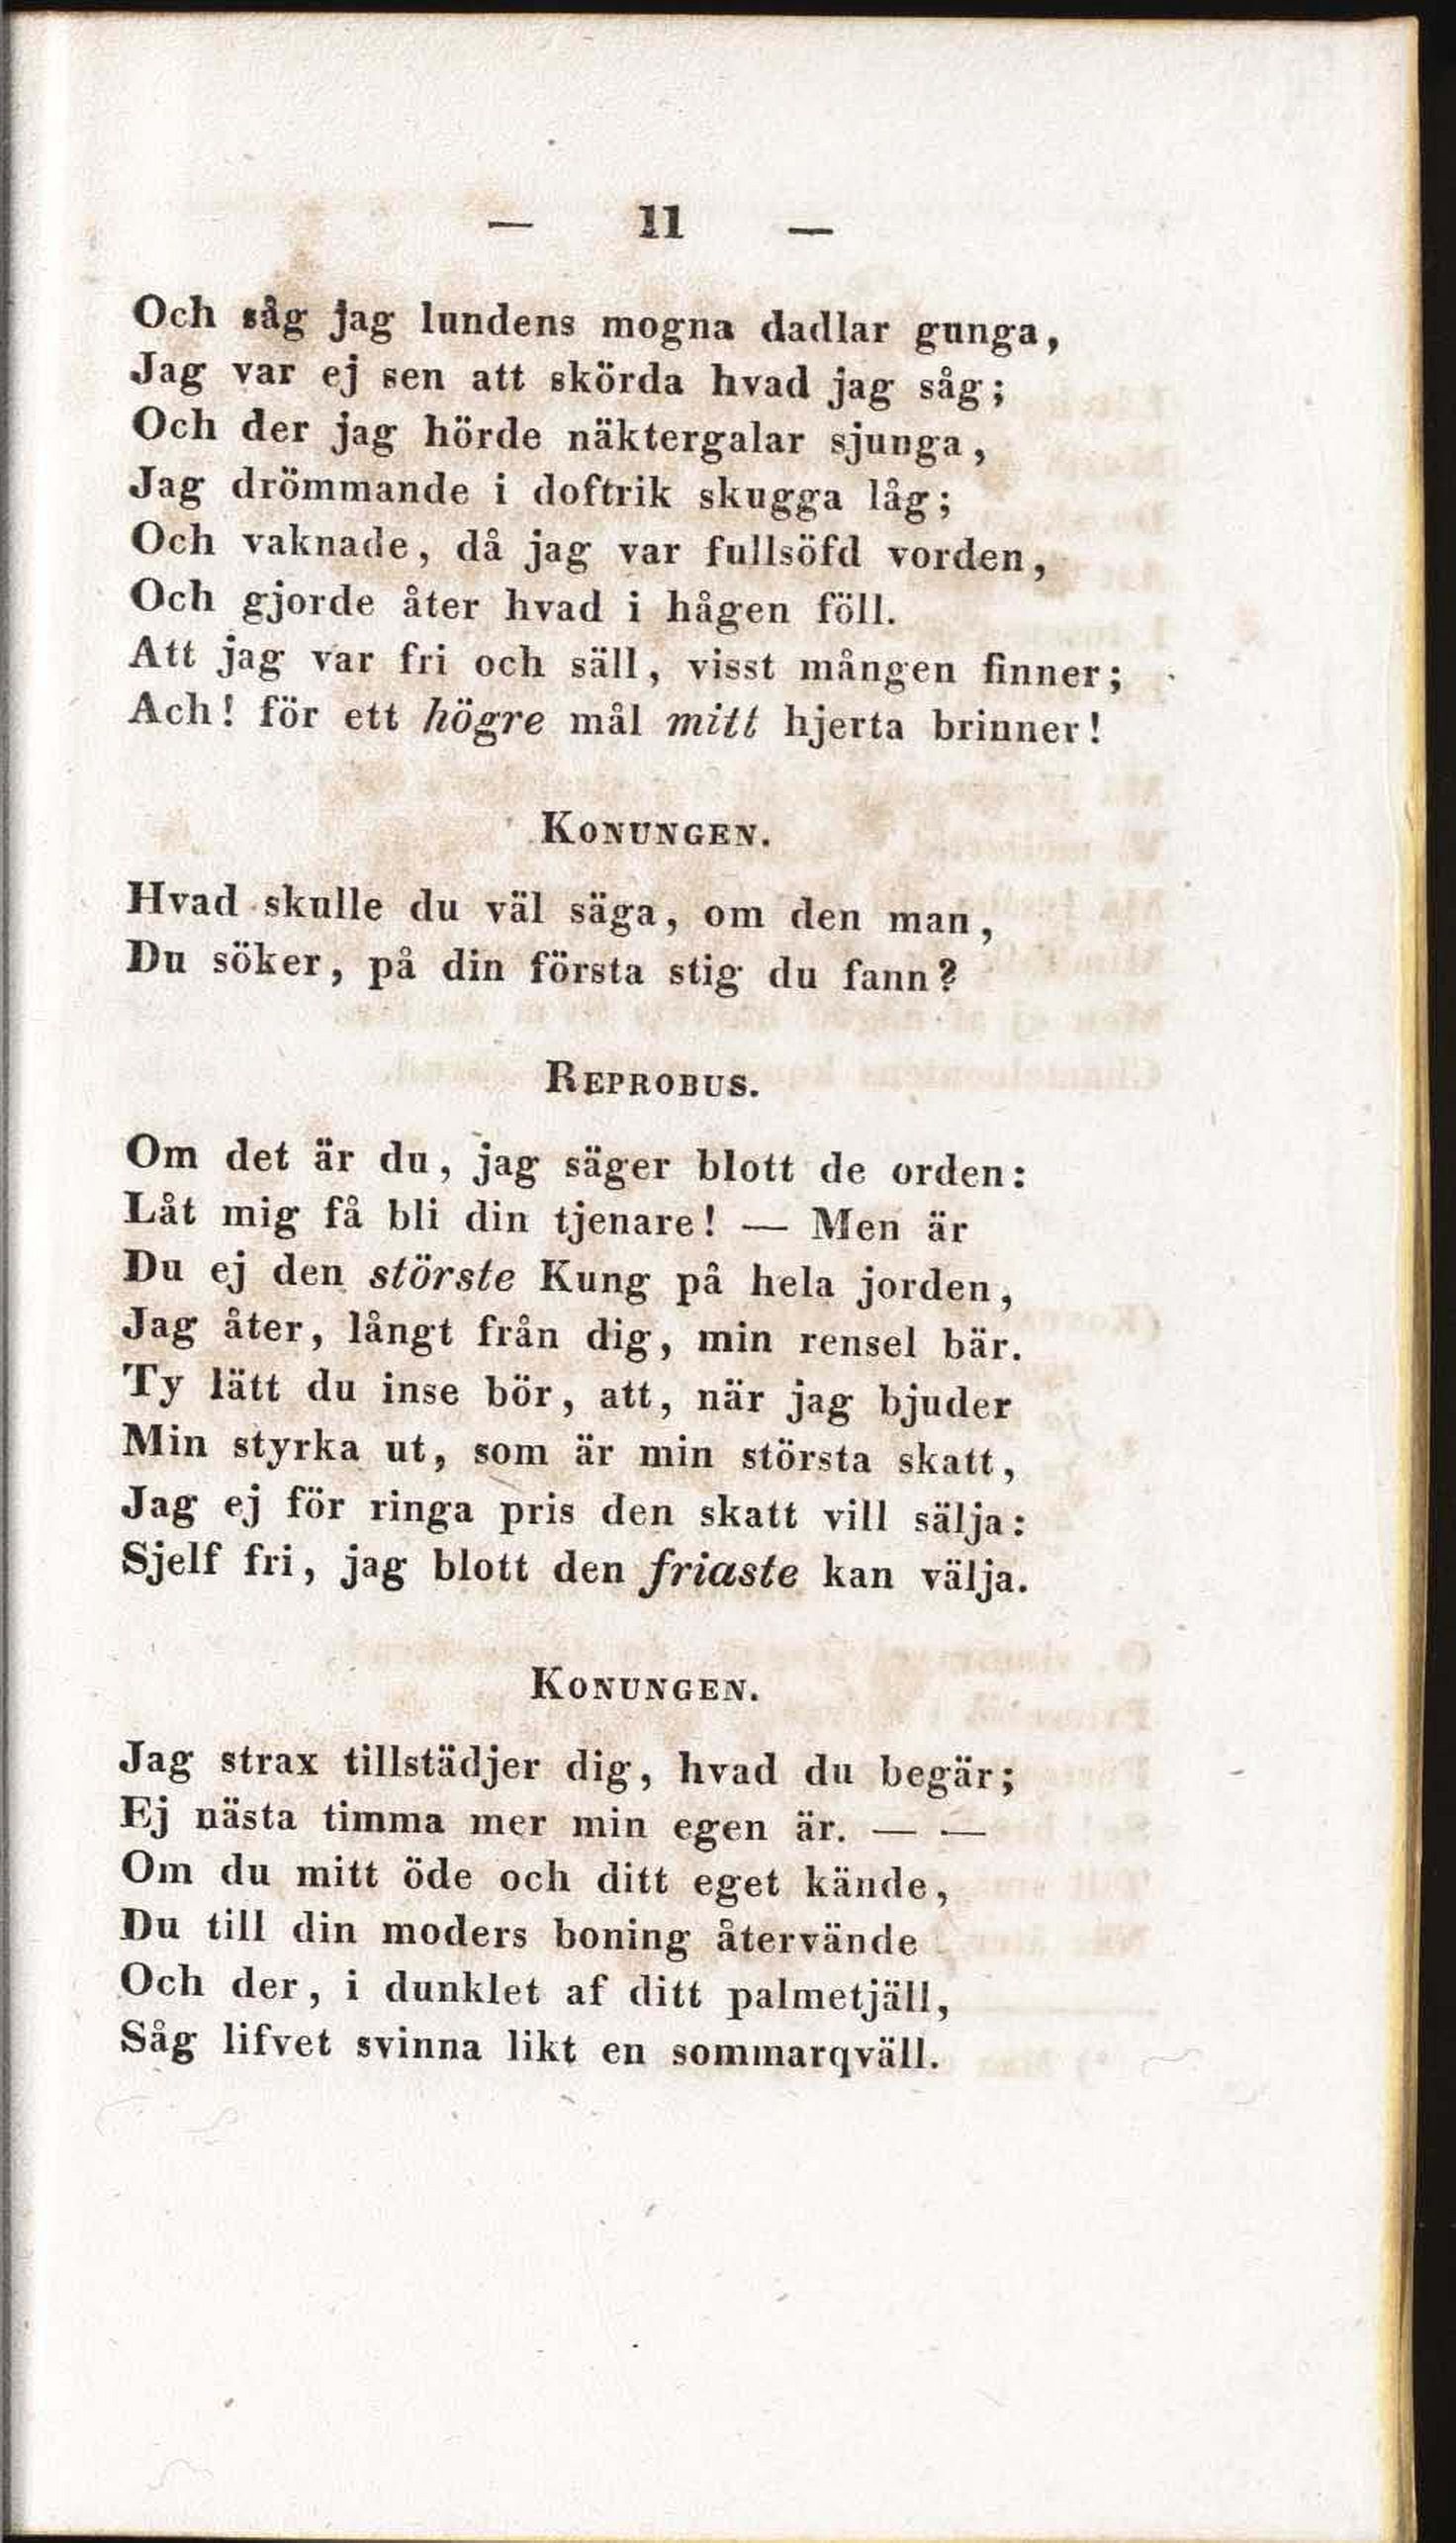 — 11 —
Och såg jag lundens mogna dadlar gunga,
Jag var ej sen att skörda hvad jag såg;
Och der jag hörde näktergalar sjunga,
Jag drömmande i doftrik skugga låg;
Och vaknade, då jag var fullsöfd vorden,
Och gjorde åter hvad i hågen föll.
Att jag var fri och säll, visst mången finner;
Ach! för ett högre mål mitt hjerta brinner!
KONUNGEN.
Hvad skulle du väl säga, om den man,
Du söker, på din första stig du fann?
REPROBUS.
Om det är du, jag säger blott de orden:
Låt mig få bli din tjenare! — Men är
Du ej den störste Kung på hela jorden,
Jag åter, långt från dig, min rensel bär.
Ty lätt du inse bör, att, när jag bjuder
Min styrka ut, som är min största skatt,
Jag ej för ringa pris den skatt vill sälja:
Sjelf fri, jag blott den friaste kan välja.
KONUNGEN.
Jag strax tillstädjer dig, hvad du begär;
Ej nästa timma mer min egen är. — —
Om du mitt öde och ditt eget kände,
Du till din moders boning återvände
Och der, i dunklet af ditt palmetjäll,
Såg lifvet svinna likt en sommarqväll.